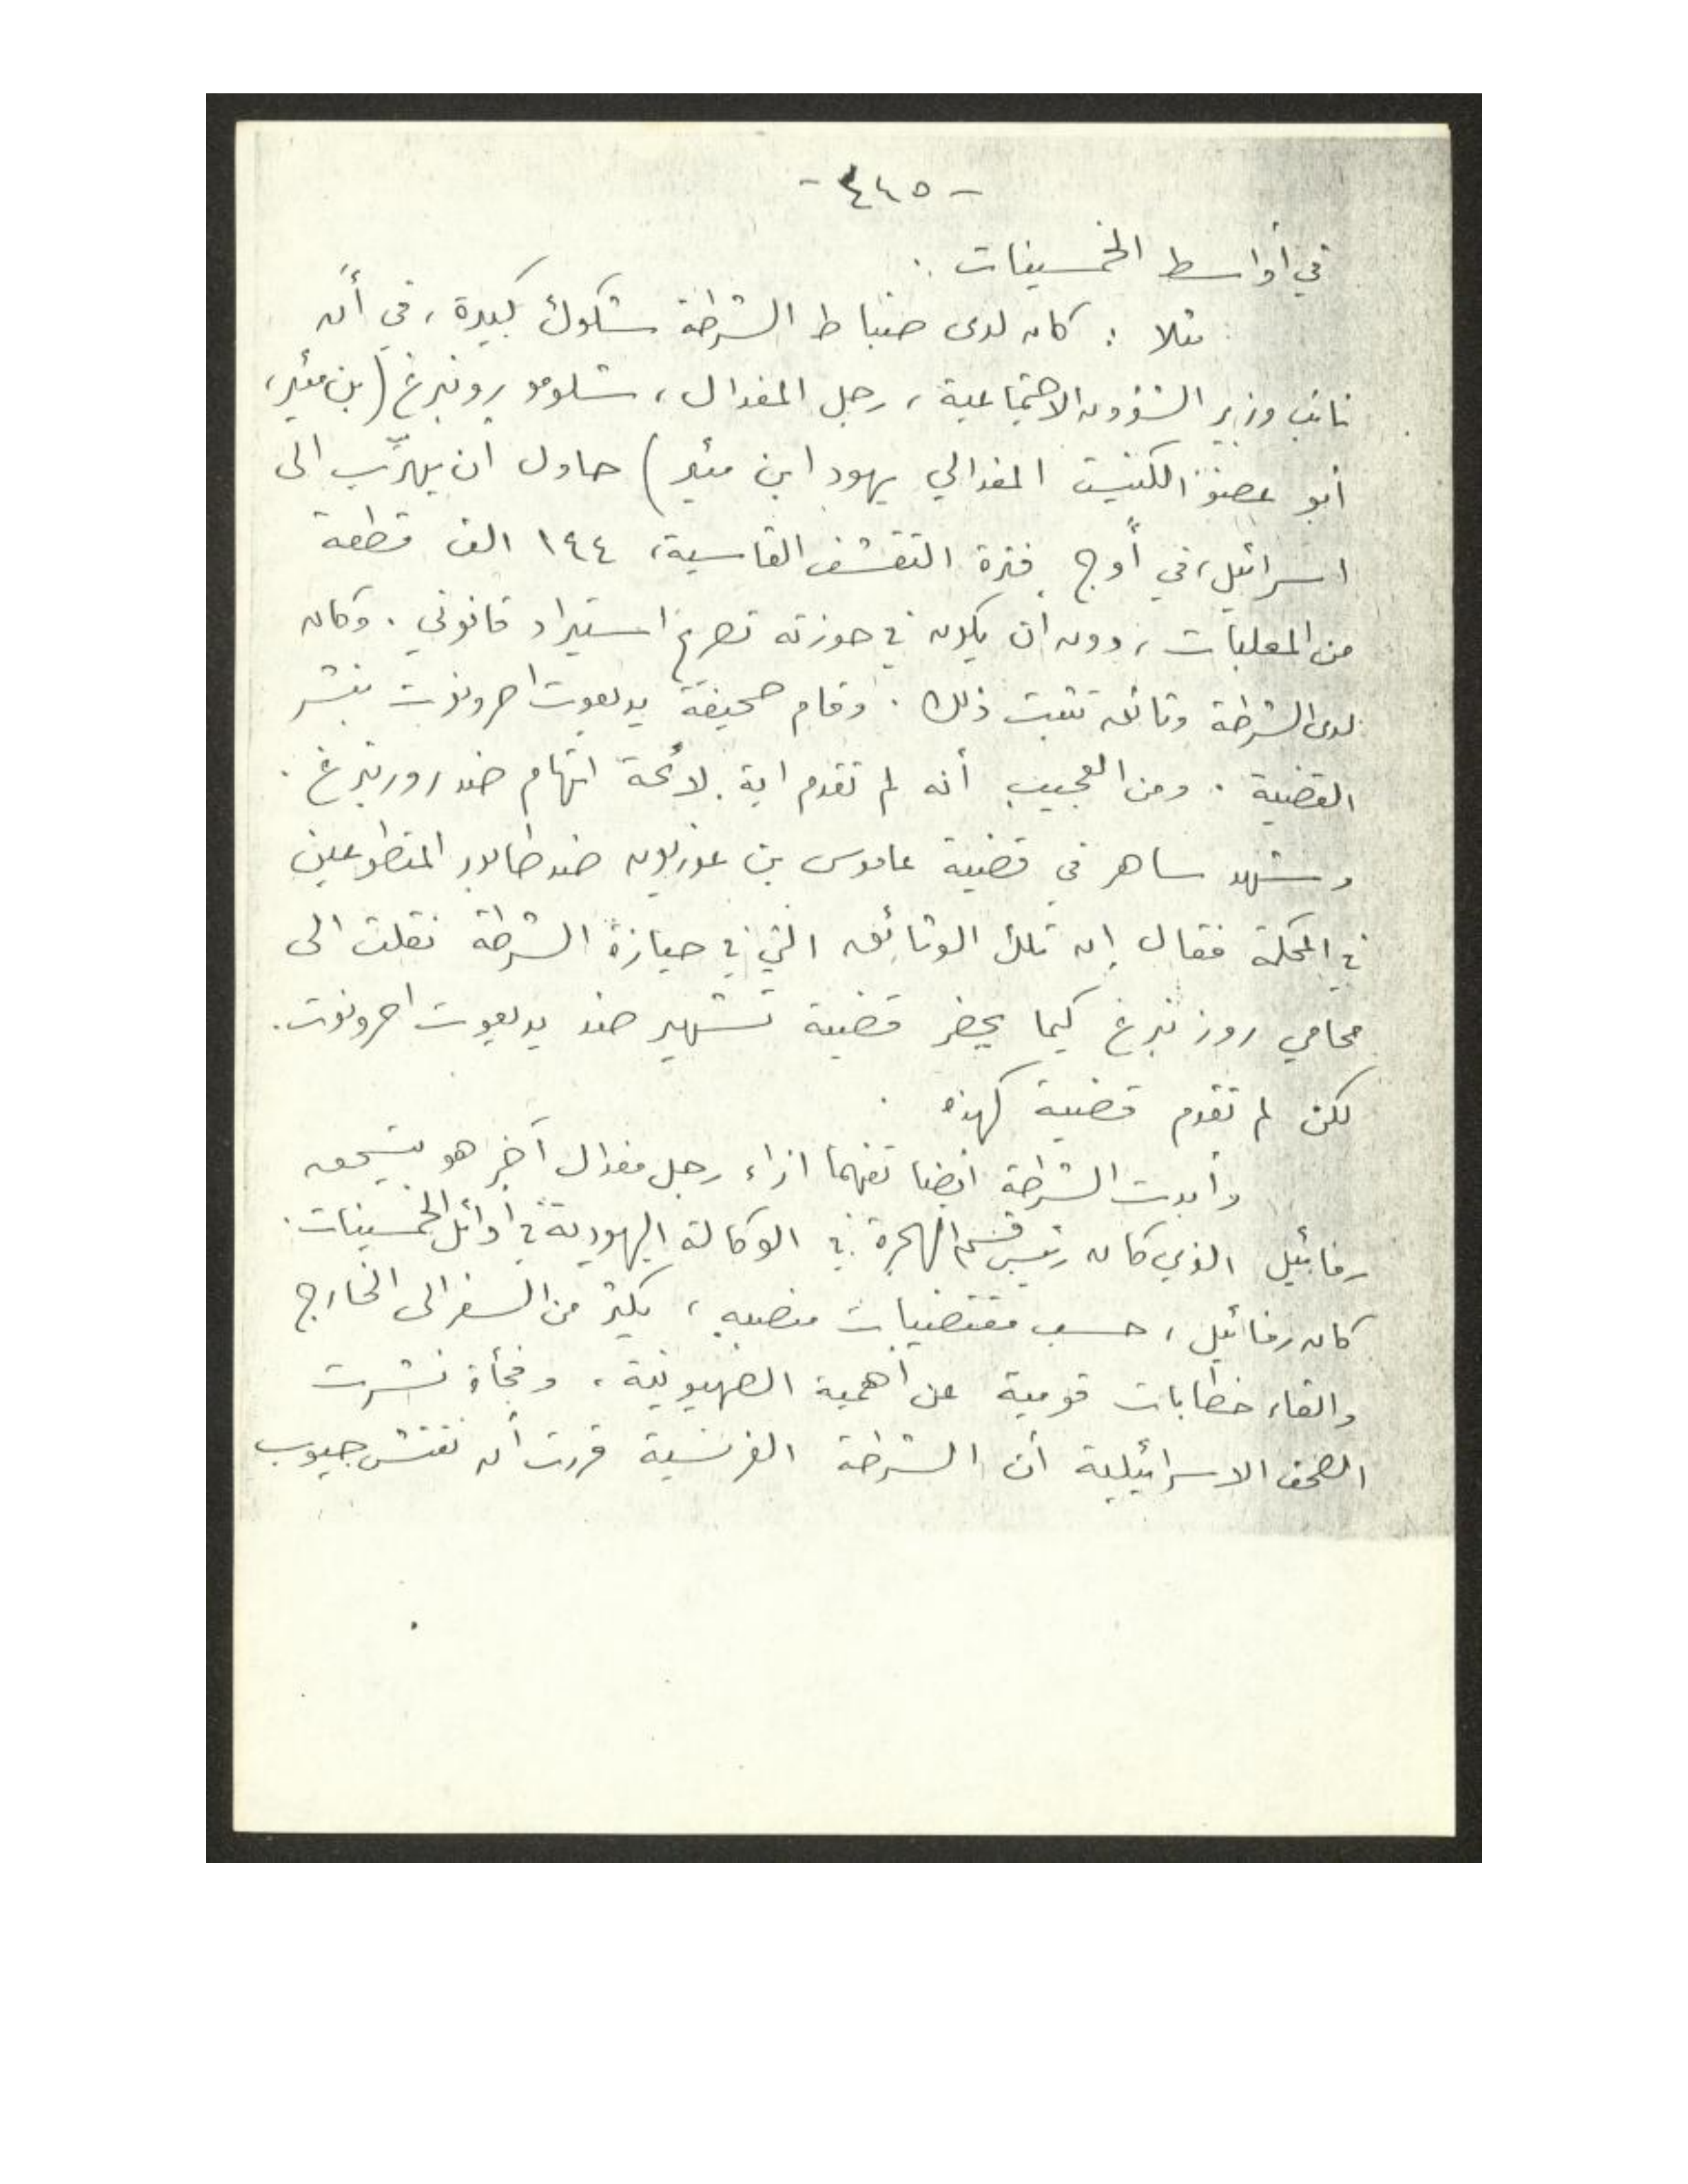 - ٤٤٥ -
في أواسط الخمسينات .
مثلا : كان لدى ضباط الشرطة شكوك كبيرة ، في أن
نائب وزير الشؤون الاجتماعية ، رجل المفدال ، شلومو روزنبرغ (بن مئير ،
أبو عضو الكنيست المفدالي يهودا بن مئير) حاول ان يهرّب الى
اسرائيل ، في أوج فترة التقشف القاسية ، ١٤٤ الف قطعة
من المعلبات ، دون ان يكون في حوزته تصريح استيراد قانوني . وكان
لدى الشرطة وثائق تثبت ذلك . وقام صحيفة يديعوت احرونوت بنشر
القضية . ومن العجيب أنه لم تقدم اية لائحة اتهام ضد روزنبرغ .
وشهد ساهر في قضية عاموس بن غوريون ضد طابور المتطوعين
في المحكمة فقال إن تلك الوثائق التي في حيازة الشرطة نقلت الى
محامي روزنبرغ كيما يحضر قضية تشهير ضد يديعوت احرونوت .
لكن لم تقدم قضية كهذه .
وأبدت الشرطة ايضا تفهما ازاء رجل مفدال آخر هو يتسحق
رفائيل الذي كان رئيس قسم الهجرة في الوكالة اليهودية في أوائل الخمسينات .
كان رفائيل ، حسب مقتضيات منصبه ، يكثر من السفر الى الخارج
والقاء خطابات قومية عن أهمية الصهيونية ، وفجأة نشرت
الصحف الاسرائيلية أن الشرطة الفرنسية قررت أن تفتش جيوب